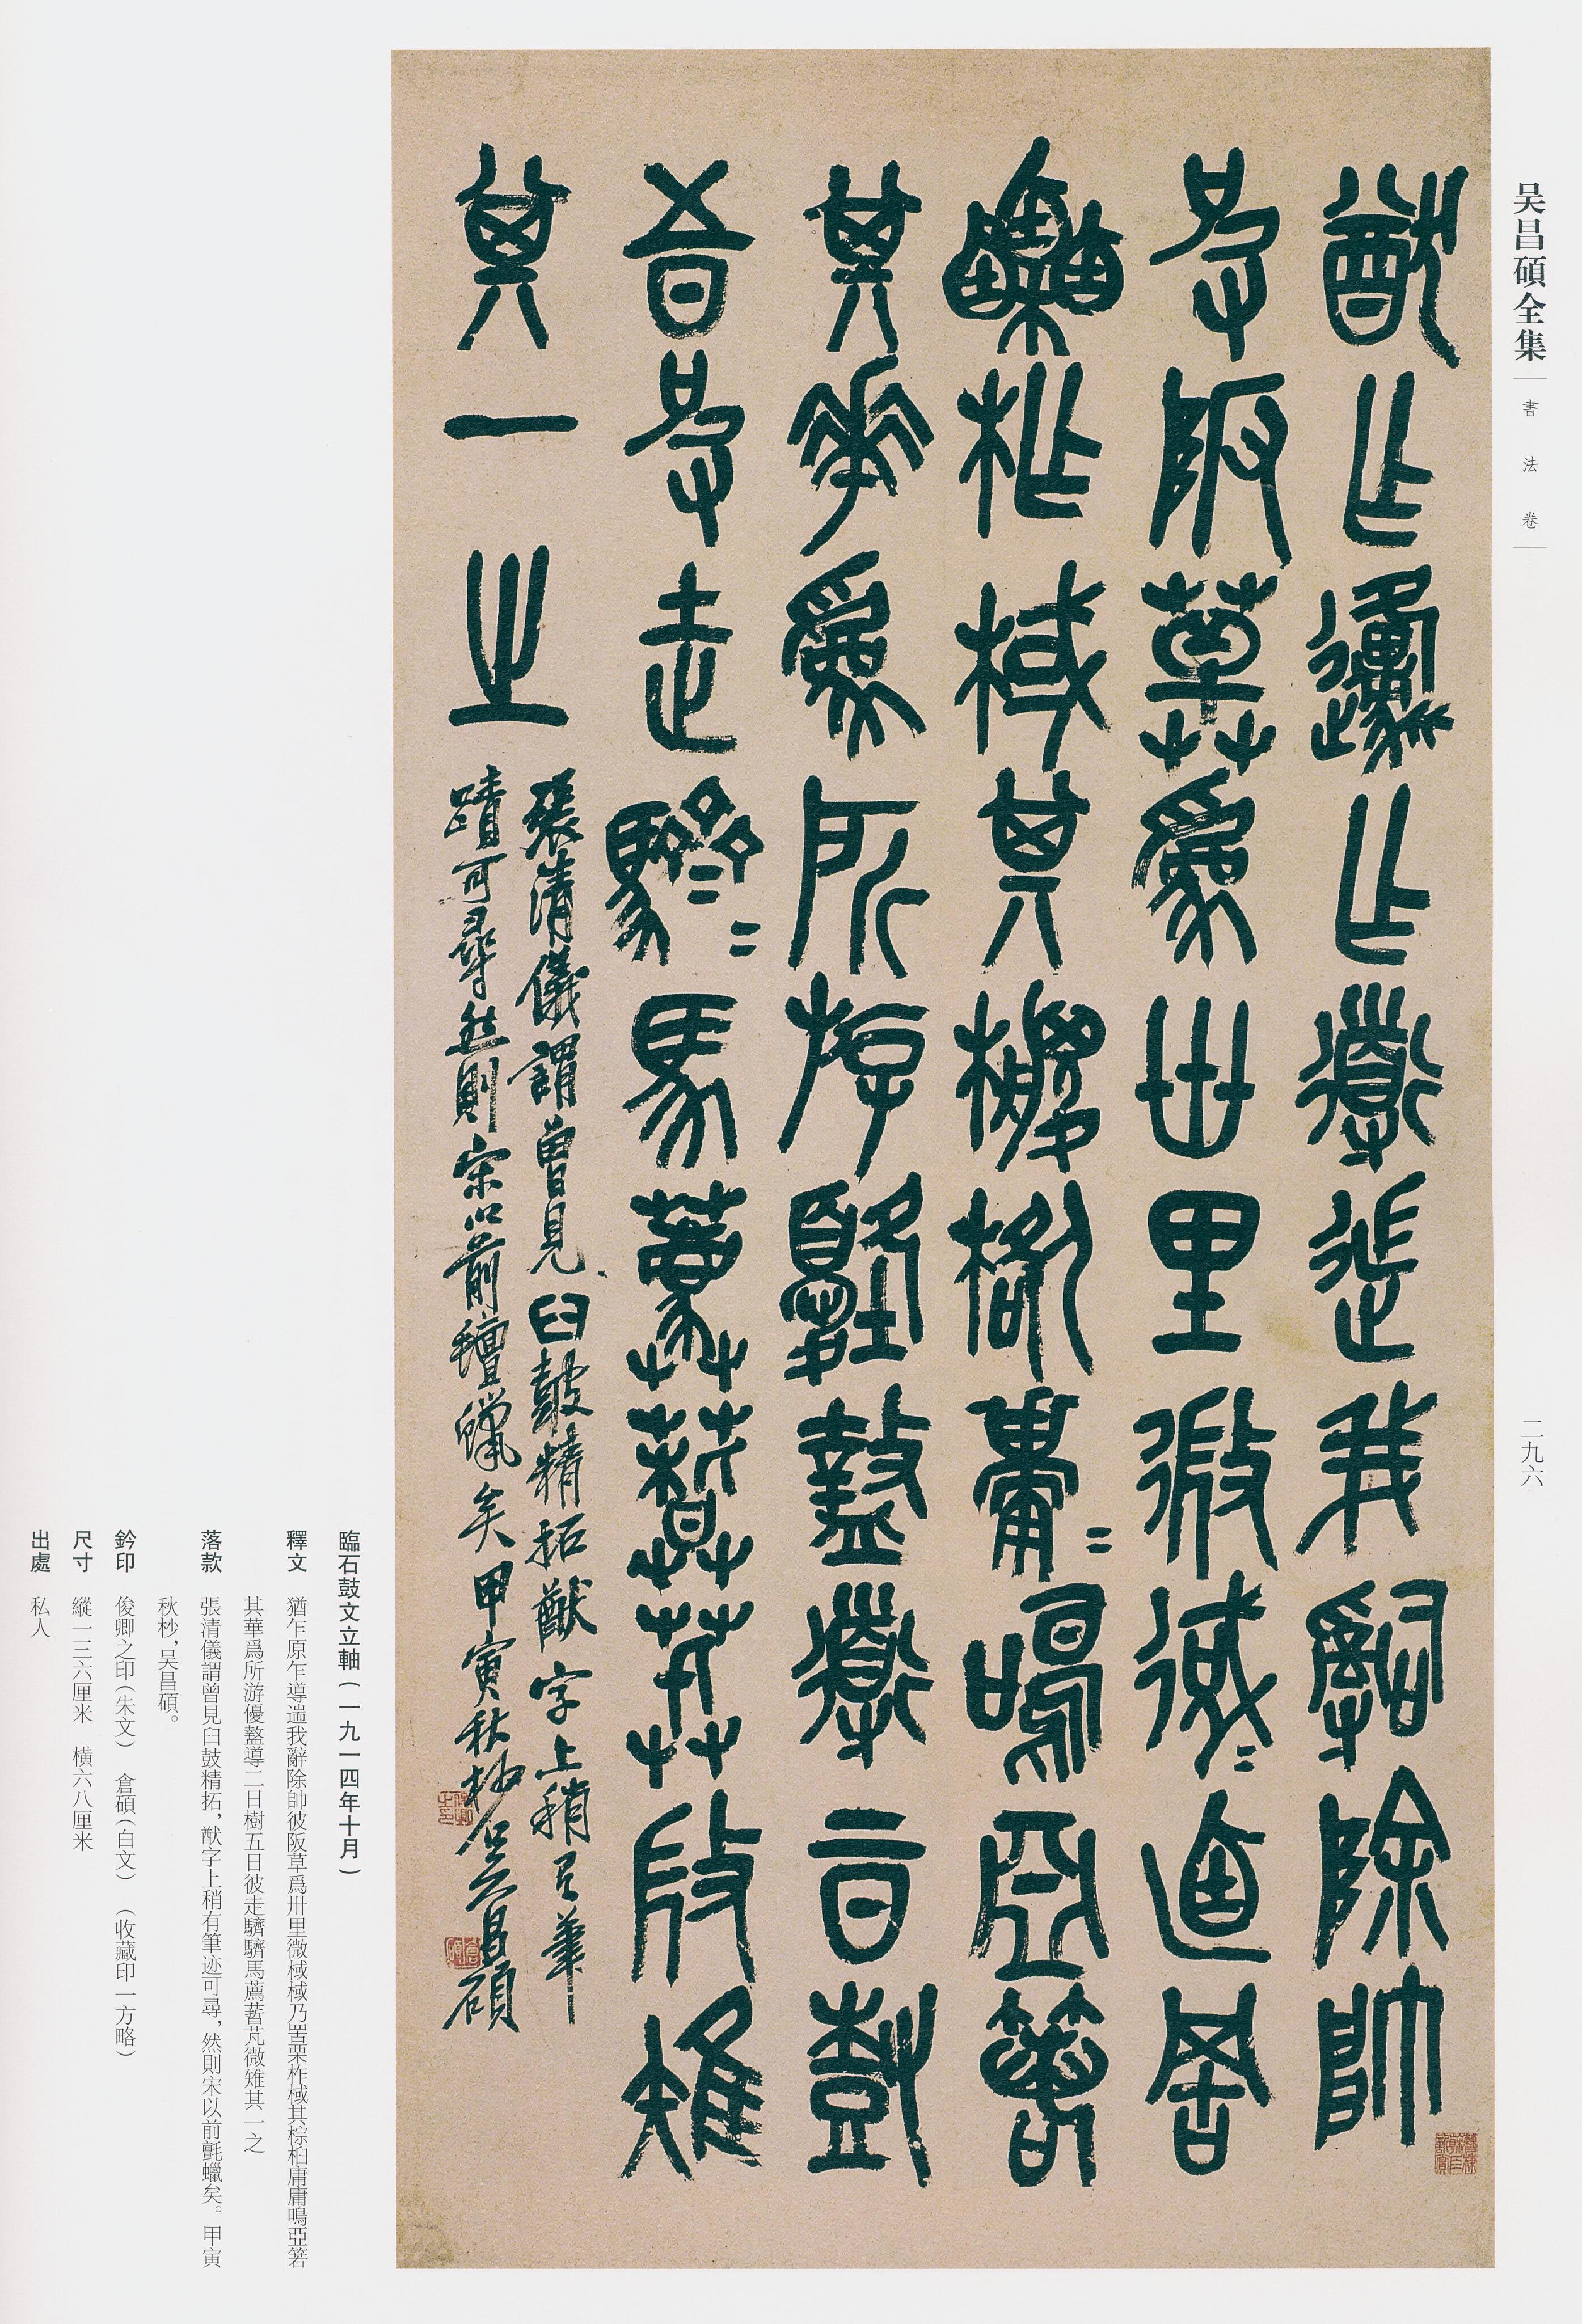 吴昌碩全集
書法卷
二九六
猷乍邍乍導遄我辭除帥
彼阪草爲卅里微罟
栗柞棫其鳴亞箬
其華爲所斿盩導二日樹
五日彼走馬薦芃微雉
其一之
張清儀謂曾見臼鼓精拓猷字上稍有筆
蹟可尋然則宋以前氈蠟矣甲寅秋杪吳昌碩
臨石鼓文立軸(一九一四年十月)
釋文 猶乍原乍導遄我辭除帥彼阪草爲卅里微棫棫乃罟栗柞棫其棕桕庸庸鳴亞箬
其華爲所游優盩導二日樹五日彼走馬薦芃微雉其一之
落款 張清儀謂曾見臼鼓精拓,猷字上稍有筆迹可尋,然則宋以前氈蠟矣。甲寅
秋杪,吴昌碩。
鈐印 俊卿之印(朱文) 倉碩(白文) (收藏印一方略)
尺寸 縱一三六厘米 橫六八厘米
出處 私人